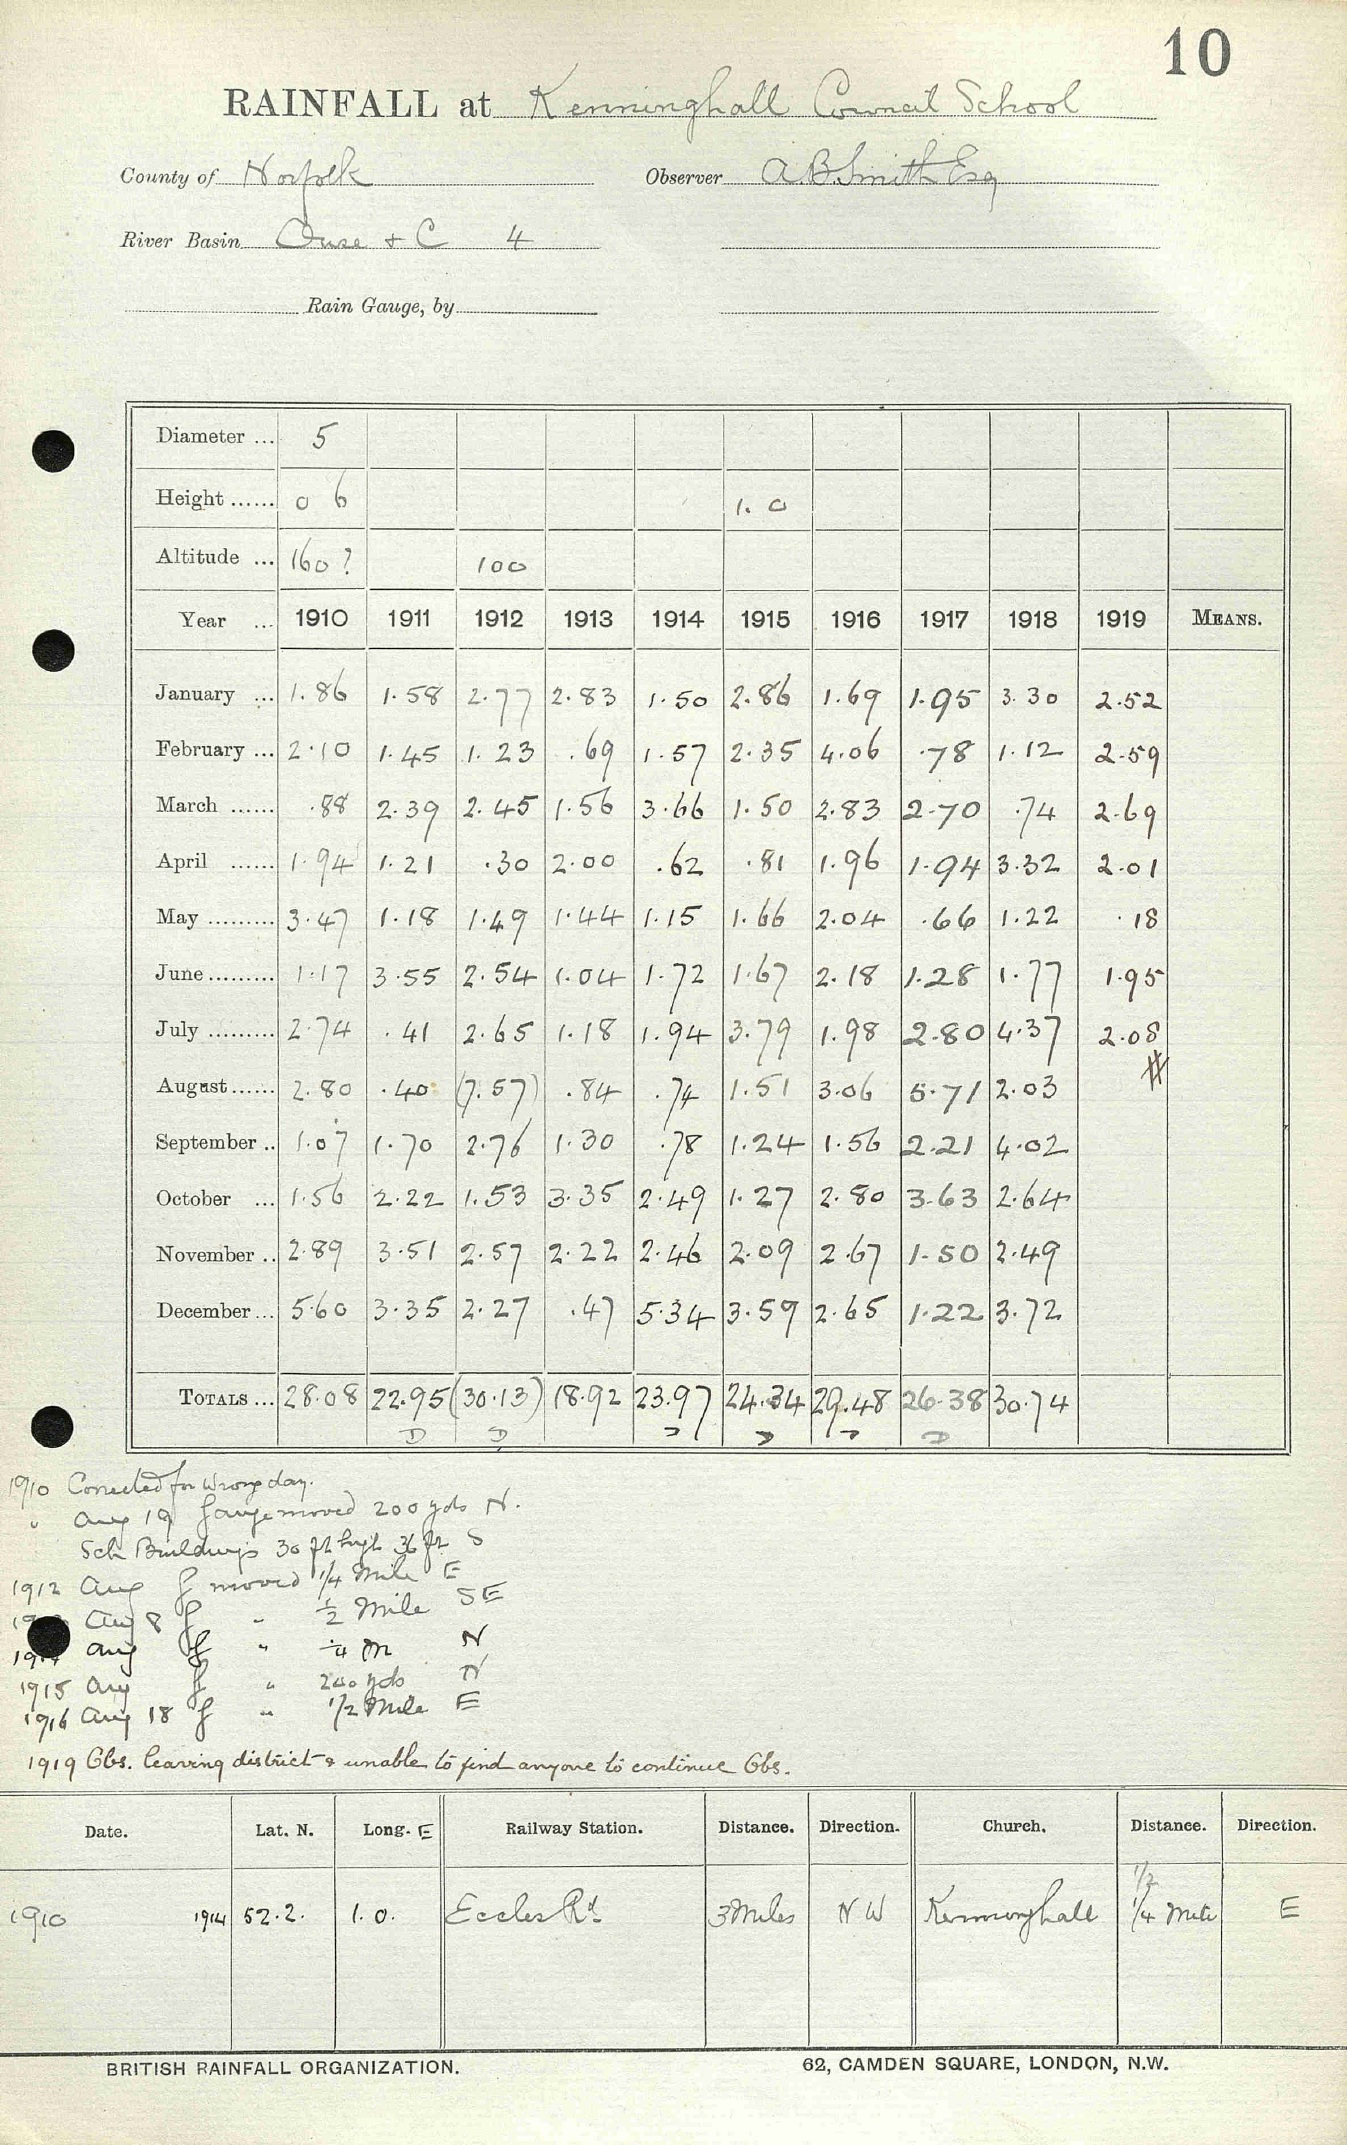 10
RAINFALL at Kenninghall Council School
County of Norfolk Observer A.B. Smith Esq
River Basin Ouse + C 4
Rain Gauge, by
Diameter ... 5
Height ...... 0 6 1. 0
Altitude ... 160? 100
Year ... 1910 1911 1912 1913 1914 1915 1916 1917 1918 1919 MEANS.
January ... 1.86 1.58 2.77 2.83 1.50 2.86 1.69 1.95 3.30 2.52
February ... 2.10 1.45 1.23 .69 1.57 2.35 4.06 .78 1.12 2.59
March ...... .88 2.39 2.45 1.56 3.66 1.50 2.83 2.70 .74 2.69
April ...... 1.94 1.21 .30 2.00 .62 .81 1.96 1.94 3.32 2.01
May ......... 3.47 1.18 1.49 1.44 1.15 1.66 2.04 .66 1.22 .18
June ......... 1.17 3.55 2.54 1.04 1.72 1.67 2.18 1.28 1.77 1.95
July ......... 2.74 .41 2.65 1.18 1.94 3.79 1.98 2.80 4.37 2.08
August ...... 2.80 .40 (7.57) .84 .74 1.51 3.06 5.71 2.03 #
September .. 1.07 1.70 2.76 1.30 .78 1.24 1.56 2.21 4.02
October ... 1.56 2.22 1.53 3.35 2.49 1.27 2.80 3.63 2.64
November .. 2.89 3.51 2.57 2.22 2.46 2.09 2.67 1.50 2.49
December ... 5.60 3.35 2.27 .47 5.34 3.59 2.65 1.22 3.72
TOTALS ... 28.08 22.95 (30.13) 18.92 23.97 24.34 29.48 26.38 30.74
D D D D D D
1910 Corrected for wrong day.
" Aug 19 Gauge moved 200 yds N.
Sch Buildings 30 ft high 36 ft S
1912 Aug g moved 1/4 Mile E
Aug 8 g " 1/2 Mile SE
Aug g " 1/4 m N
1915 Aug g " 200 yds N
1916 Aug 18 g " 1/2 Mile E
1919 Obs. leaving district & unable to find anyone to continue Obs.
Date. Lat. N. Long. E Railway Station. Distance. Direction. Church. Distance. Direction.
1/2
1910 1914 52.2. 1.0. Eccles Rd. 3 Miles NW Kenninghall 1/4 Mile E
BRITISH RAINFALL ORGANIZATION. 62, CAMDEN SQUARE, LONDON, N.W.